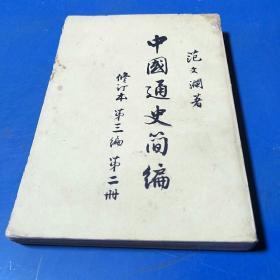 范文瀾著
中國通史简编
修订本 第三编 第二册